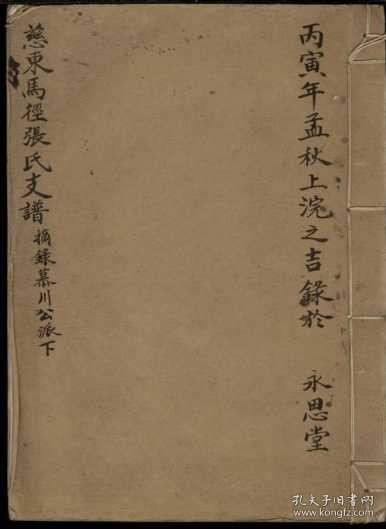 丙寅年孟秋上浣之吉錄於 永思堂
慈東馬徑張氏支譜 摘錄慕川公派下
孔夫子旧书网
kongfz.com